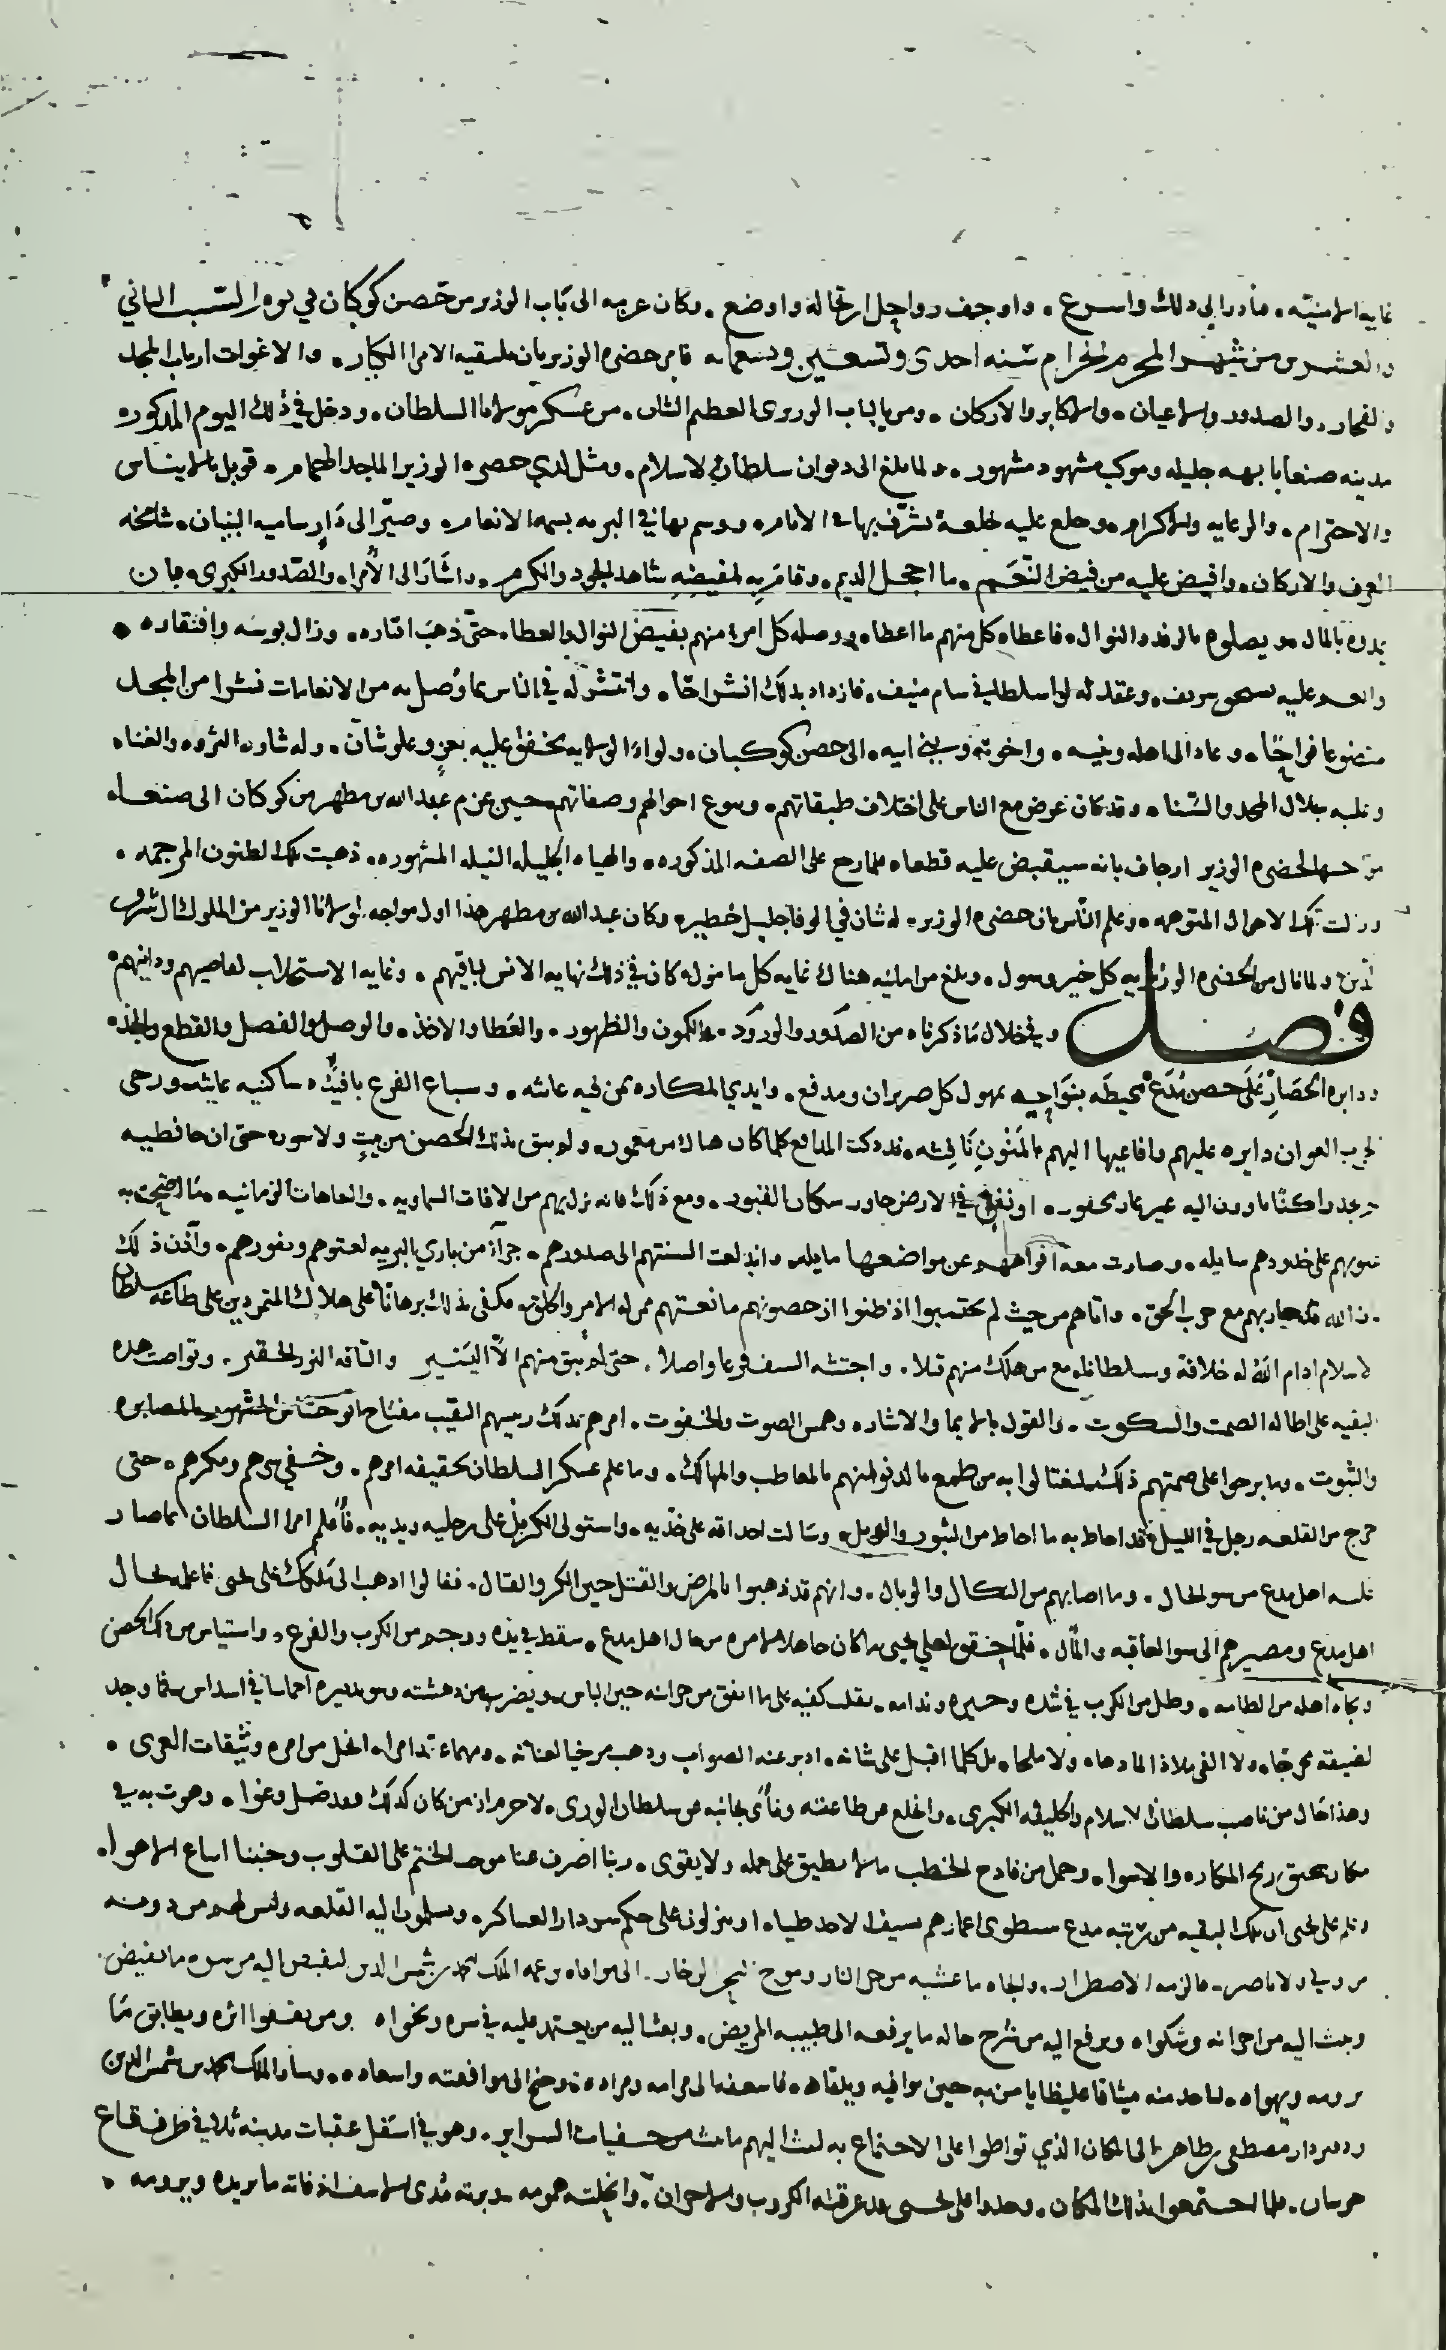 غايه الامنيه. فبادر الى ذلك واسرع. واوجف رواحل ارتحاله واوضع. وكان عزمه الى باب الوزير من حصن كوكبان في يوم السبت الثاني
والعشرين من شهر المحرم الحرام سنه احدى وتسعين وتسعمايه فامر حضره الوزير بان يلتقيه الامرا الكبار. والاغوات ارباب المجد
والفخار. والصدور والاعيان. والاكابر والاركان. ومن بالباب الوزيرى العظيم الشان. من عسكر مولانا السلطان. ودخل في ذلك اليوم المذكور
مدينه صنعا بابهه جليله وموكب مشهود مشهور. ولما بلغ الى ديوان سلطان الاسلام. ومثل لدي حضره الوزير الماجد الهمام. قوبل بالايناس
والاحترام. والرعايه والاكرام. وخلع عليه خلعة تشرف بها في الانام. ووسم بها في البريه بسمه الانعام. وصير الى دار ساميه البنيان. شامخه
الغرف والاركان. وافيض عليه من فيض النعم. ما اخجل الديم. وقام به لمفيضه شاهد الجود والكرم. واشار الى الامرا. والصدور الكبرى. بان
يمدوه بالمال ويصلوه بالرفد والنوال. فاعطاه كل منهم ما اعطاه ووصله كل امرء منهم بفيض النوال والعطا. حتى ذهب اقتاره. وزال بوسه وافتقاره.
وانعم عليه بسنجق شريف. وعقد له لوا سلطاني سام منيف. فازداد بذلك انشراحا. وانتشر له في الناس بما وصل به من الانعامات نشرا من المجد
متضوعا فواحا. وعاد الى اهله وبنيه. واخوته وبني ابيه. الى حصن كوكبان. ولواء الولايه يخفق عليه بعز وعلو شان. وله شاره الثروه والغناء
وعليه جلال المجد والسنا. وقد كان خوض مع الناس على اختلاف طبقاتهم. وتنوع احوالهم وصفاتهم. حين عزم عبد الله بن مطهر من كوكبان الى صنعاء
الحضره الوزير ارجاف بانه سيقبض عليه قطعا. فلما رجع على الصفه المذكوره. والهياه الجليله النبيله المشهوره. ذهبت تلك الظنون المرجمه.
وزالت تلك الاحوال المتوهمه. وعلم الناس بان حضره الوزير. له شان في الوفا جليل خطير. وكان عبد الله بن مطهر هذا اول مواجه لمولانا الوزير من الملوك ال شرف
الدين. ولما نال من الحضره الوزيريه كل خير وسول. وبلغ من امنيه هناك غايه كل مامول. كان في ذلك نهايه الانس لباقيهم. وغايه الاستجلاب لقاصيهم ودانيهم.
فصل وفي خلال ما ذكرناه من الصدور والورود. والكمون والظهور. والعطا والاخذ. والوصل والفصل والقطع والجذ.
ودايره الحصار على حصن مدع محيطه بنواحيه بمهول كل ضربزان ومدفع. وايدي المكاره بمن فيه عابثه. وسباع الفزع بافيده ساكنيه عايثه. ورحى
الحرب العوان دايره عليهم وافاعيها اليهم بالمنون نافثه. فدكدكت المدافع كلما كان هنالك من معمور. ولم يبق بذلك الحصن من بيت ولا سور. حتى ان حافظيه
لم يجدوا كنا ياوون اليه غير غار محفور. او نفق في الارض جاور سكان القبور. ومع ذلك فانه نزل بهم من الافات السماويه. والعاهات الزمانيه. ما اضحت به
عيونهم على خدودهم سايله. وصارت معه افواههم عن مواضعها مايله. واندلعت السنتهم الى صدورهم. جزاء من باري البريه لعتوهم ونفورهم. واذن ذلك
بان الله قد حاربهم مع حزب الحق. واتاهم من حيث لم يحتسبوا اذ ظنوا ان حصونهم مانعتهم ممن له الامر والخلق. وكفى بذلك برهانا على هلاك المتمردين على طاعه سلطان
الاسلام ادام الله له خلافة وسلطانا. مع من هلك منهم قتلا. واجتثه السيف فرعا واصلا. حتى لم يبق منهم الا اليسير والتافه النزر الحقير. وتواصت هذه
البقيه على اطاله الصمت والسكوت. والقول بالايما والاشاره وهمس الصوت والخفوت. امرهم بذلك رييسهم النقيب مفتاح المشهور بالمصابره
والثبوت. وما برحوا على صمتهم ذلك ليغتالوا به من طمع بالدنو منهم بالمعاطب والمهالك. وما علم عسكر السلطان بحقيقه امرهم. وخفي سرهم ومكرهم. حتى
خرج من القلعه رجل في الليل قد احاط به ما احاط من الثبور والويل. وسالت احداقه على خديه. واستولى الكزاز على رجليه ويديه. فاعلم امرا السلطان بما صار
عليه اهل مدع من سو الحال. وما اصابهم من النكال والوبال. وانهم قد ذهبوا بالمرض والقتل حين الكر والقتال. فقالوا اذهب الى ملكك على يحيى فاعلمه بحال
اهل مدع ومصيرهم الى سو العاقبه والمال. فلما تحقق لعلي يحيى ما كان جاهلا امره من حال اهل مدع. سقط في يده ووجم من الكرب والفزع. واستياس من ذلك الحصن
ونجاه اهله من الطامه. وظل من الكرب في شده وحسره وندامه. يقلب كفيه على ما اتفق من خزانه حين الباس. ويضرب من دهشته وسو تدبيره اخماسا في اسداس. فما وجد
لضيقه مخرجا. ولا الفى ملاذا لما دهاه ولا ملجا. بل كلما اقبل على شانه. ادبر عنه الصواب وذهب مرخيا لعنانه. ومهما عقد امرا. انحل من امره وثيقات العرى.
وهذا حال من ناصب سلطان الاسلام والخليفه الكبرى. وانخلع من طاعته وناى بجانبه عن سلطان الورى. لا جرم ان من كان كذلك فقد ضل وغوا. وهوت به في
مكان سحيق ريح المكاره والاسوا. وحمل من فادح الخطب ما لا يطيق على حمله ولا يقوى. ربنا اصرف عنا موجب الختم على القلوب وجنبنا اتباع الاهوا.
وعلم على يحيى ان تلك البقيه من رتبه مدع ستطوى اعمارهم بسيف الاخذ طيا. او ينزلون على حكم سردار العساكر. ويسلمون اليه القلعه وليس لهم من دونه
من ولي ولا ناصر. فالزمه الاضطرار. والجاه ما غشيه من حر النار وموج البحر الزخار. الى موافاه بن عمه الملك محمد بن شمس الدين ليفيض اليه من سره ما يفيض.
ويبث اليه من احزانه وشكواه ويرفع اليه من شرح حاله ما يرفعه الى طبيبه المريض. وبعث اليه من يعتمد عليه في سره ونجواه ومن يقفوا اثره ويطابق ما
يرومه ويهواه. لياخذ منه ميثاقا غليظا يامن به حين يوافيه ويلقاه. فاسعفه الى مرامه ومراده. وجنح الى موافقته واسعاده. وسار الملك محمد بن شمس الدين
وسردار مصطفى بن طاهر الى المكان الذي تواطوا على الاجتماع به ليبث اليهم ما يبث من خفيات السراير. وهو في اسفل عقبات مدينه ثلا في طرف قاع
حوشان. فلما اجتمعوا بذلك المكان. وجدوا على يحيى قد عرقته الكروب والاحزان. وانحلته همومه وبرته مدى الاسف اذ فاته ما يريده ويرومه.